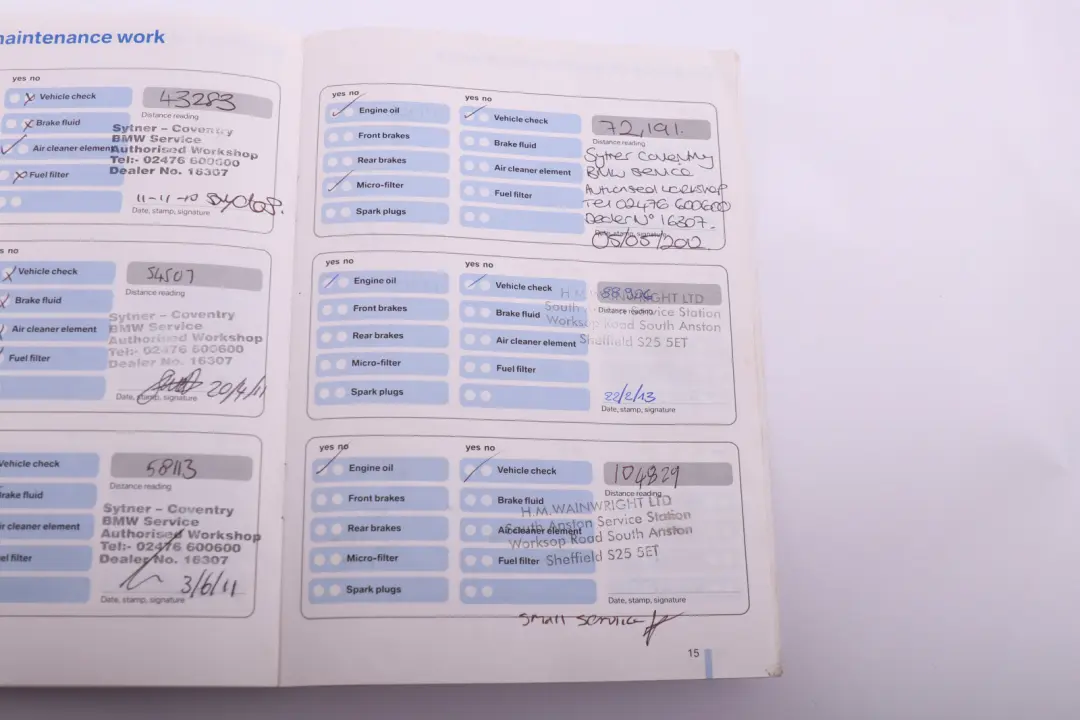 maintenance work
yes no
Vehicle check
Brake fluid
Air cleaner element
Fuel filter
43283
Distance reading
Sytner – Coventry
BMW Service
Authorised Workshop
Tel:- 02476 600600
Dealer No. 16307
11-11-10
Date, stamp, signature
s no
Vehicle check
Brake fluid
Air cleaner element
Fuel filter
54507
Distance reading
Sytner – Coventry
BMW Service
Authorised Workshop
Tel:- 02476 600600
Dealer No. 16307
20/4/11
Date, stamp, signature
Vehicle check
rake fluid
ir cleaner element
el filter
58113
Distance reading
Sytner – Coventry
BMW Service
Authorised Workshop
Tel:- 02476 600600
Dealer No. 16307
3/6/11
Date, stamp, signature
yes no
Engine oil
Front brakes
Rear brakes
Micro-filter
Spark plugs
yes no
Vehicle check
Brake fluid
Air cleaner element
Fuel filter
72,191.
Distance reading
Sytner Coventry
BMW Service
Authorised workshop
Tel 02476 600600
Dealer Nº 16307.
Date, stamp, signature
05/05/2012
yes no
Engine oil
Front brakes
Rear brakes
Micro-filter
Spark plugs
yes no
Vehicle check
Brake fluid
Air cleaner element
Fuel filter
Distance reading
H.M.WAINWRIGHT LTD
South Anston Service Station
Worksop Road South Anston
Sheffield S25 5ET
22/2/13
Date, stamp, signature
yes no
Engine oil
Front brakes
Rear brakes
Micro-filter
Spark plugs
yes no
Vehicle check
Brake fluid
Air cleaner element
Fuel filter
104829
Distance reading
H.M.WAINWRIGHT LTD
South Anston Service Station
Worksop Road South Anston
Sheffield S25 5ET
Date, stamp, signature
small service
15